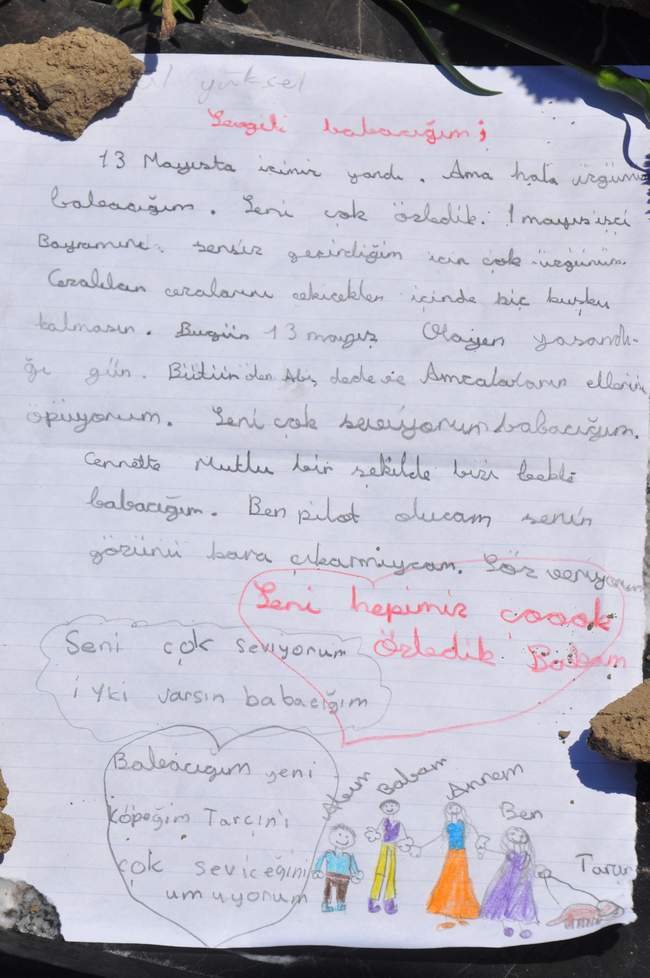 yüksel
Sevgili babacığım;
13 Mayısta içimiz yandı. Ama hala üzgünüz
babacığım. Seni çok özledik. 1 mayıs işçi
Bayramını sensiz geçirdiğim için çok üzgünüm.
cezalarını çekicekler içinde hiç kuşku
kalmasın. Bugün 13 mayıs Olayın yaşandı-
ğı gün. Bütün den Abiş dede ve Amcalarının ellerini
öpüyorum. Seni çok seviyorum babacığım.
Cennette Mutlu bir şekilde bizi bekle
babacığım. Ben pilot olucam senin
yüzünü kara çıkarmıycam. Söz veriyorum
Seni hepimiz çoook
özledik Babam
Seni çok seviyorum
iyki varsın babacığım
Babacığım yeni
köpeğim Tarçın'ı
çok seviceğini
umuyorum
Babam
Annem
Ben
Tarçın